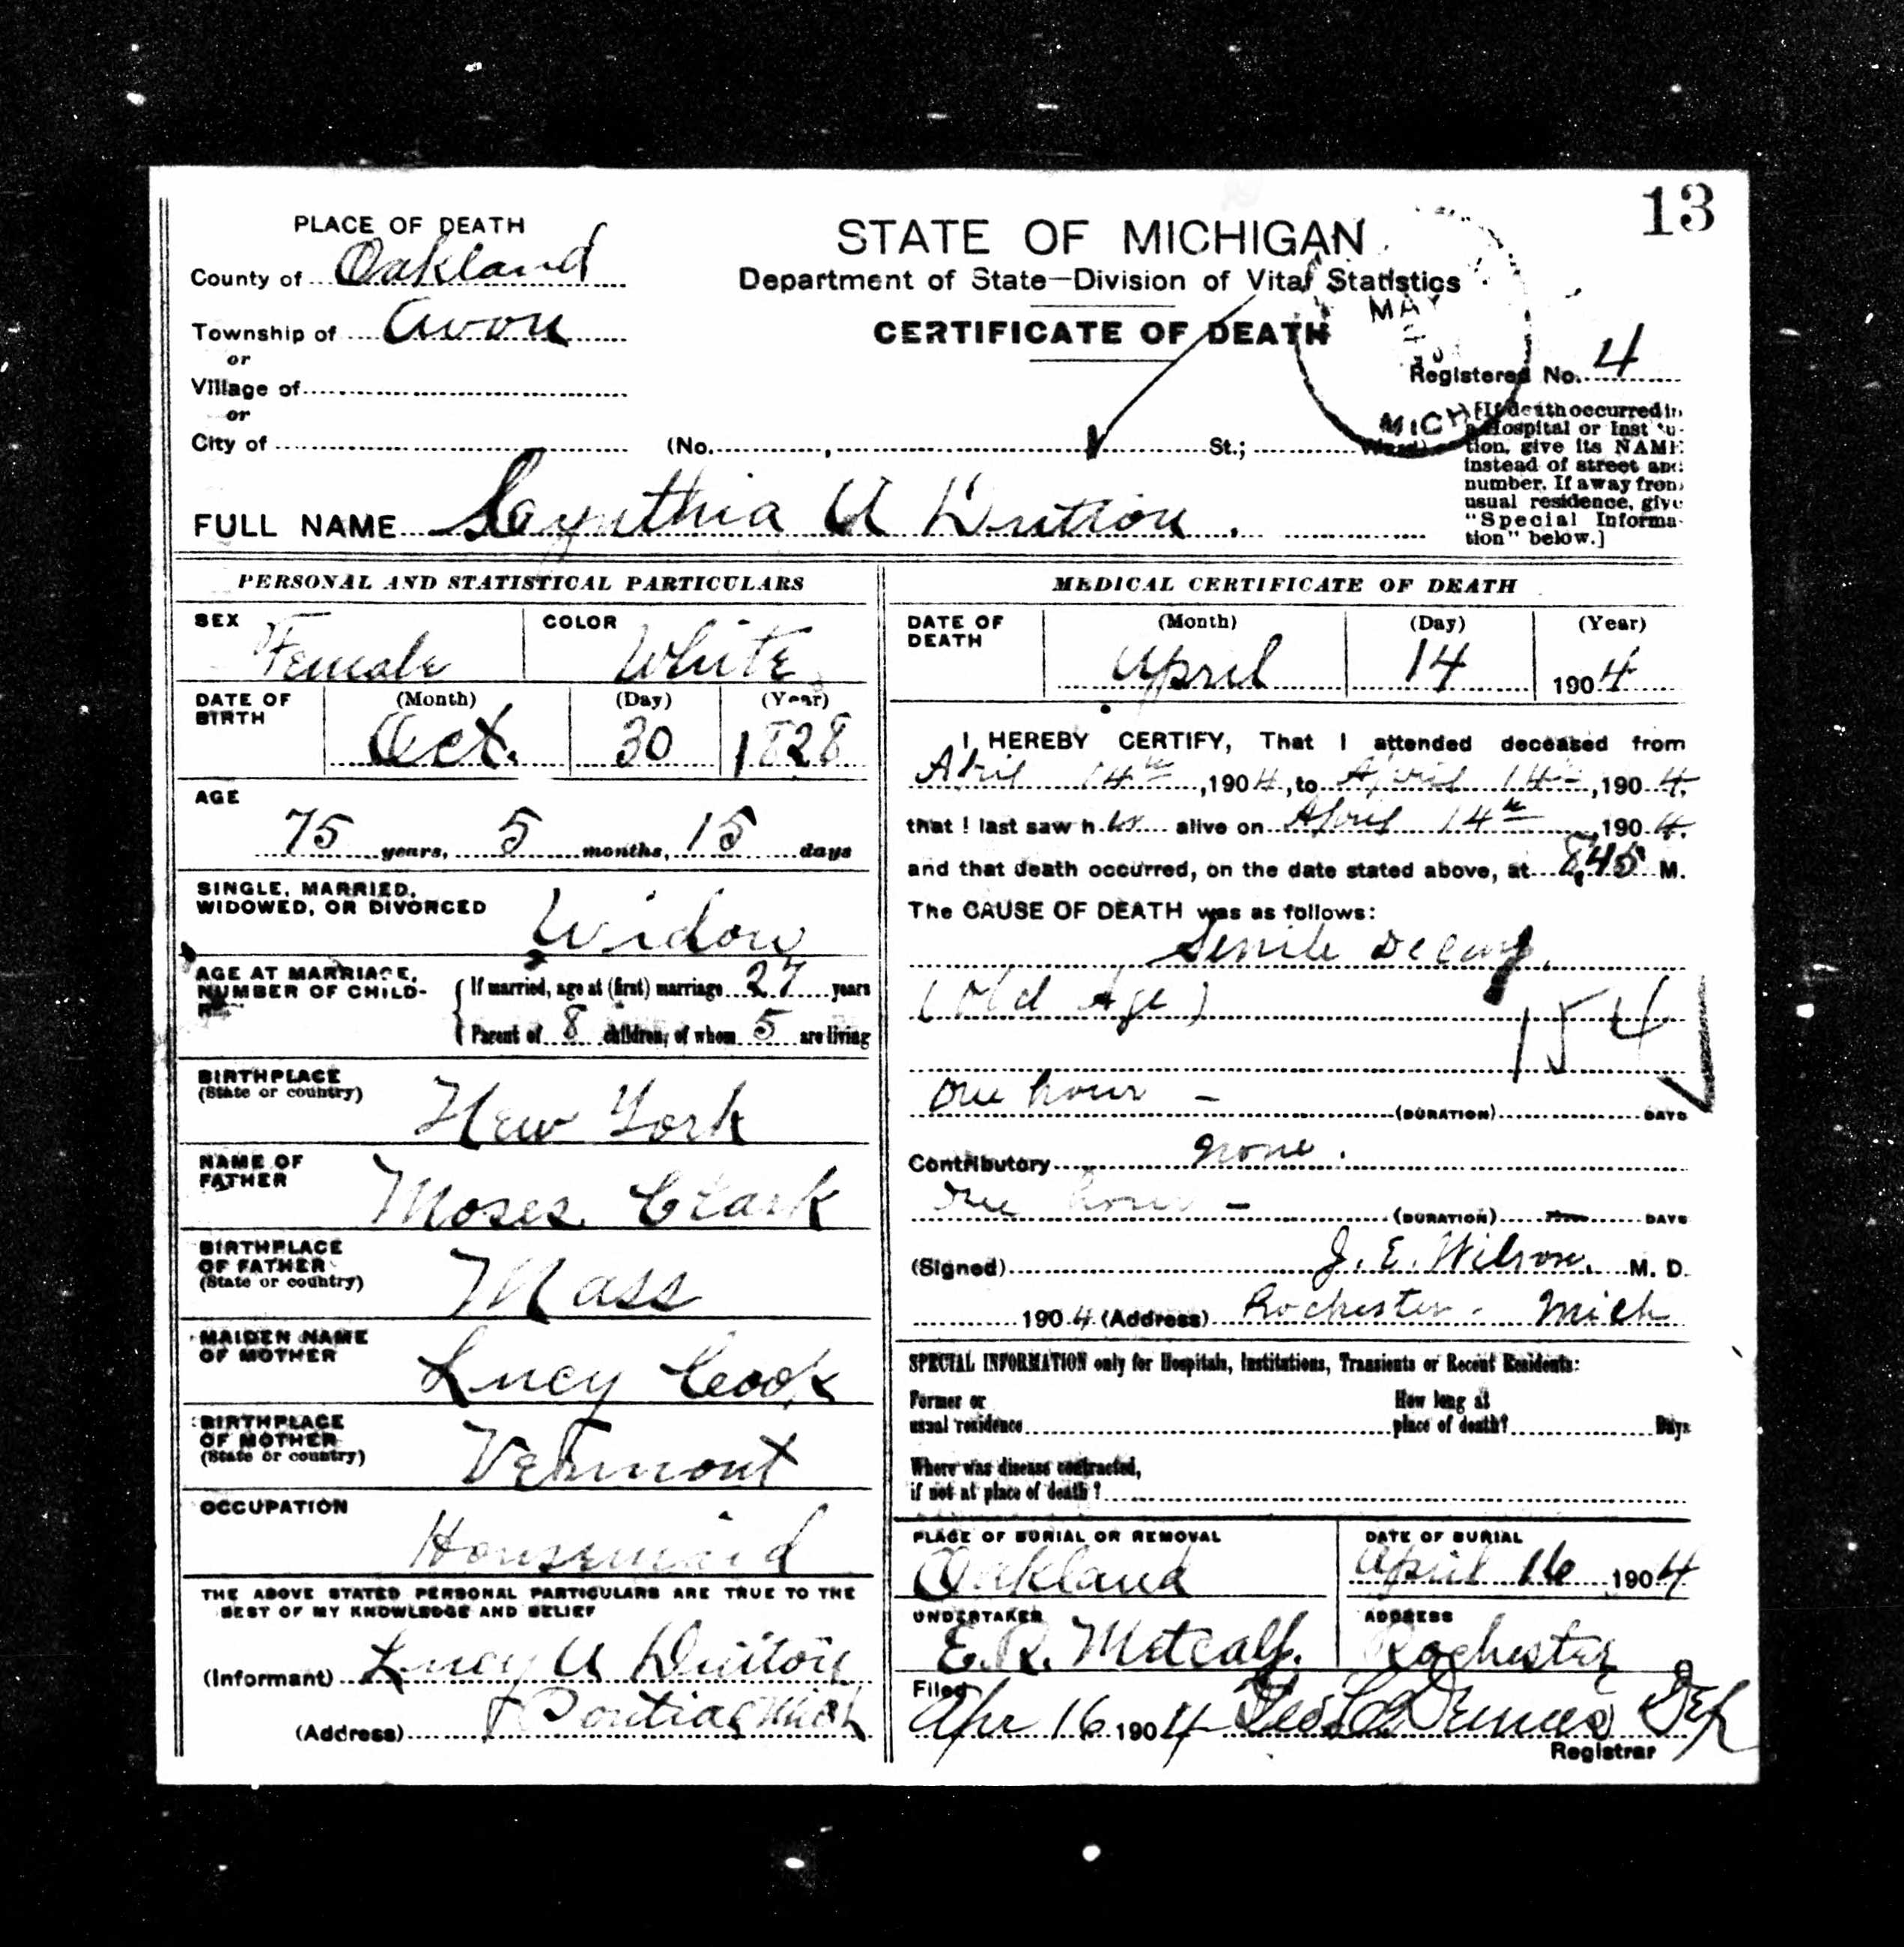 13
PLACE OF DEATH
County of Oakland
Township of Avon
or
Village of
or
City of
STATE OF MICHIGAN
Department of State—Division of Vital Statistics
CERTIFICATE OF DEATH
MAY
MICH
Registered No. 4
(No. , St.;
[If death occurred in
a Hospital or Institu-
tion, give its NAME
instead of street and
number. If away from
usual residence, give
"Special Informa-
tion" below.]
FULL NAME Cynthia A Dutton.
PERSONAL AND STATISTICAL PARTICULARS
SEX Female
COLOR White
DATE OF BIRTH
(Month) (Day) (Year)
Oct. 30 1828
AGE
75 years, 5 months, 15 days
SINGLE, MARRIED,
WIDOWED, OR DIVORCED Widow
AGE AT MARRIAGE,
NUMBER OF CHILD-
If married, age at (first) marriage 27 years
Parent of 8 children, of whom 5 are living
BIRTHPLACE
(State or country) New York
NAME OF
FATHER Moses Clark
BIRTHPLACE
OF FATHER
(State or country) Mass
MAIDEN NAME
OF MOTHER Lucy Cook
BIRTHPLACE
OF MOTHER
(State or country) Vermont
OCCUPATION
Housemaid
THE ABOVE STATED PERSONAL PARTICULARS ARE TRUE TO THE
BEST OF MY KNOWLEDGE AND BELIEF
(Informant) Lucy A Dutton
(Address) Pontiac Mich
MEDICAL CERTIFICATE OF DEATH
DATE OF DEATH
(Month) (Day) (Year)
April 14 1904
I HEREBY CERTIFY, That I attended deceased from
April 14th, 1904, to April 14th, 1904.
that I last saw her alive on April 14th, 1904.
and that death occurred, on the date stated above, at 8,45 M.
The CAUSE OF DEATH was as follows:
Senile Decay.
(Old Age)
154
One hour - (DURATION) DAYS
Contributory none.
One hour - (DURATION) DAYS
(Signed) J. E. Wilson. M. D.
1904 (Address) Rochester. Mich
SPECIAL INFORMATION only for Hospitals, Institutions, Transients or Recent Residents:
Former or
usual residence
How long at
place of death? Days
Where was disease contracted,
if not at place of death?
PLACE OF BURIAL OR REMOVAL
Oakland
DATE OF BURIAL
April 16 1904
UNDERTAKER
E. R. Metcalf.
ADDRESS
Rochester
Filed
Apr 16 1904 Dep
Registrar